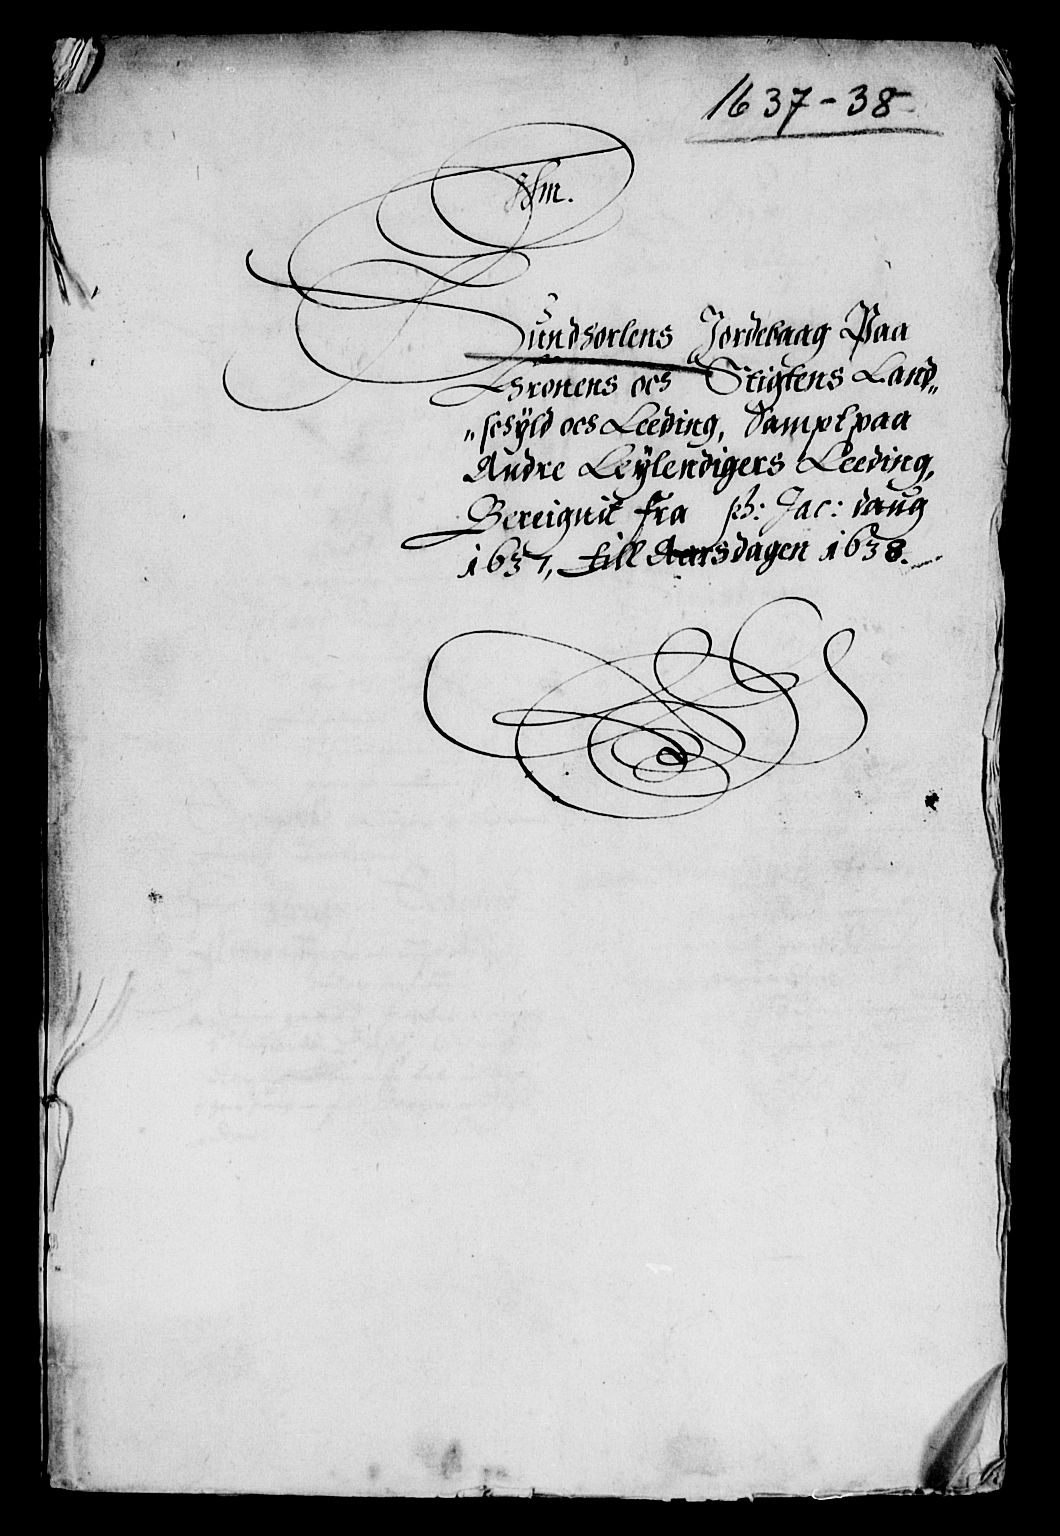 1637-38
Sundhorlens Jordebaag Paa
Chronens och Stigtens Land„
„schÿld och Leeding, Sampt paa
Andre Leÿlendigers Leeding,
Bereignit fra Jac: daug
1637, till Aarsdagen 1638.